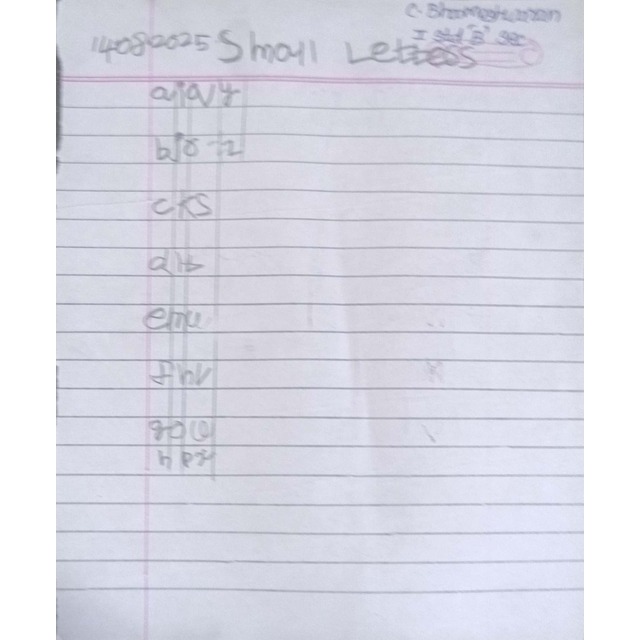 C. Bhoomeshwaran
I std "B" sec
14082025 Small Letters
a i q y
b j r z
c k s
d l t
e m u
f n v
g o w
h p x